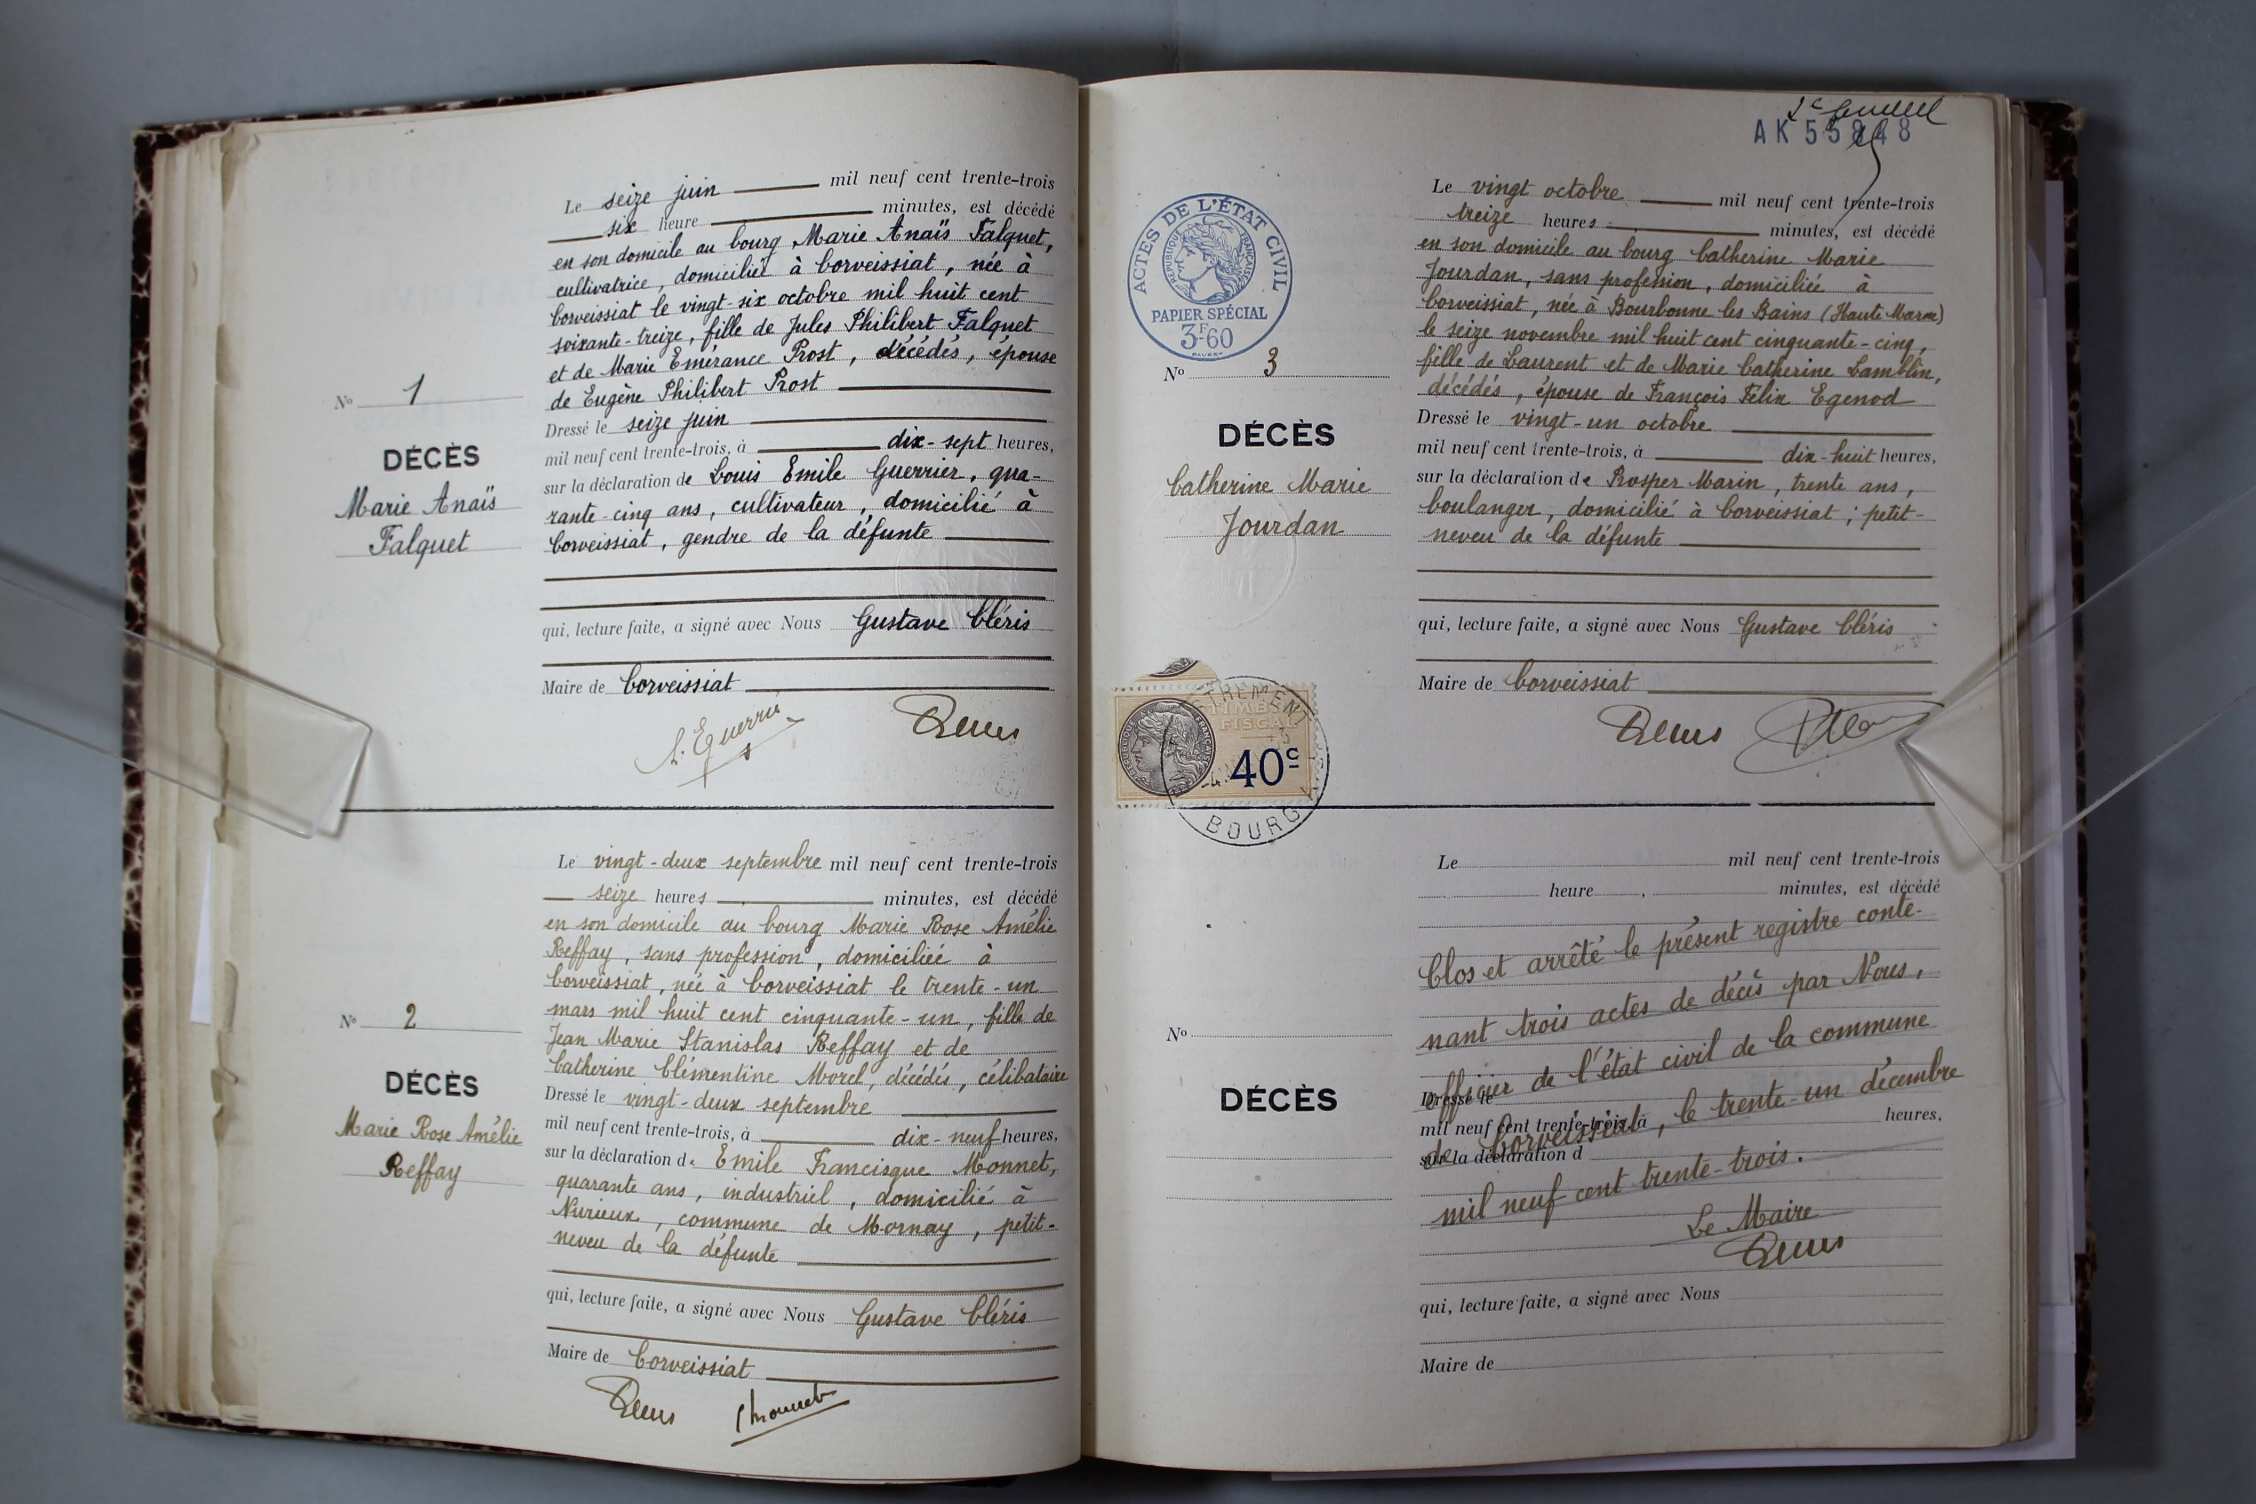 Le seize juin mil neuf cent trente-trois
six heure minutes, est décédé
en son domicile au bourg Marie Anaïs Falquet,
cultivatrice, domiciliée à Corveissiat, née à
Corveissiat le vingt-six octobre mil huit cent
soixante-treize, fille de Jules Philibert Falquet
et de Marie Emérance Prost, décédés, épouse
de Eugène Philibert Prost
Nº 1
DÉCÈS
Marie Anaïs
Falquet
Dressé le seize juin
mil neuf cent trente-trois, à dix-sept heures,
sur la déclaration de Louis Emile Guerrier, qua-
rante-cinq ans, cultivateur, domicilié à
Corveissiat, gendre de la défunte
qui, lecture faite, a signé avec Nous Gustave Cléris
Maire de Corveissiat
Le vingt-deux septembre mil neuf cent trente-trois
seize heures minutes, est décédé
en son domicile au bourg Marie Rose Amélie
Reffay, sans profession, domiciliée à
Corveissiat, née à Corveissiat le trente-un
mars mil huit cent cinquante-un, fille de
Jean Marie Stanislas Reffay et de
Catherine Clémentine Morel, décédés, célibataire
Nº 2
DÉCÈS
Marie Rose Amélie
Reffay
Dressé le vingt-deux septembre
mil neuf cent trente-trois, à dix-neuf heures,
sur la déclaration de Emile Francisque Monnet,
quarante ans, industriel, domicilié à
Nurieux, commune de Mornay, petit-
neveu de la défunte
qui, lecture faite, a signé avec Nous Gustave Cléris
Maire de Corveissiat
Monnet
AK 55848
ACTES DE L'ÉTAT CIVIL
RÉPUBLIQUE FRANÇAISE
PAPIER SPÉCIAL
3F60
Le vingt octobre mil neuf cent trente-trois
treize heures minutes, est décédé
en son domicile au bourg Catherine Marie
Jourdan, sans profession, domiciliée à
Corveissiat, née à Bourbonne les Bains (Haute Marne)
le seize novembre mil huit cent cinquante-cinq,
fille de Laurent et de Marie Catherine Lamblin,
décédés, épouse de François Félix Egenod
Nº 3
DÉCÈS
Catherine Marie
Jourdan
Dressé le vingt-un octobre
mil neuf cent trente-trois, à dix-huit heures,
sur la déclaration de Prosper Marin, trente ans,
boulanger, domicilié à Corveissiat; petit-
neveu de la défunte
qui, lecture faite, a signé avec Nous Gustave Cléris
Maire de Corveissiat
TIMBRE
FISCAL
40c
BOURG
Le mil neuf cent trente-trois
heure, minutes, est décédé
Clos et arrêté le présent registre conte-
nant trois actes de décès par Nous,
officier de l'état civil de la commune
de Corveissiat, le trente-un décembre
mil neuf cent trente-trois.
Le Maire
Nº
DÉCÈS
Dressé le
mil neuf cent trente-trois, à heures,
sur la déclaration d
qui, lecture faite, a signé avec Nous
Maire de